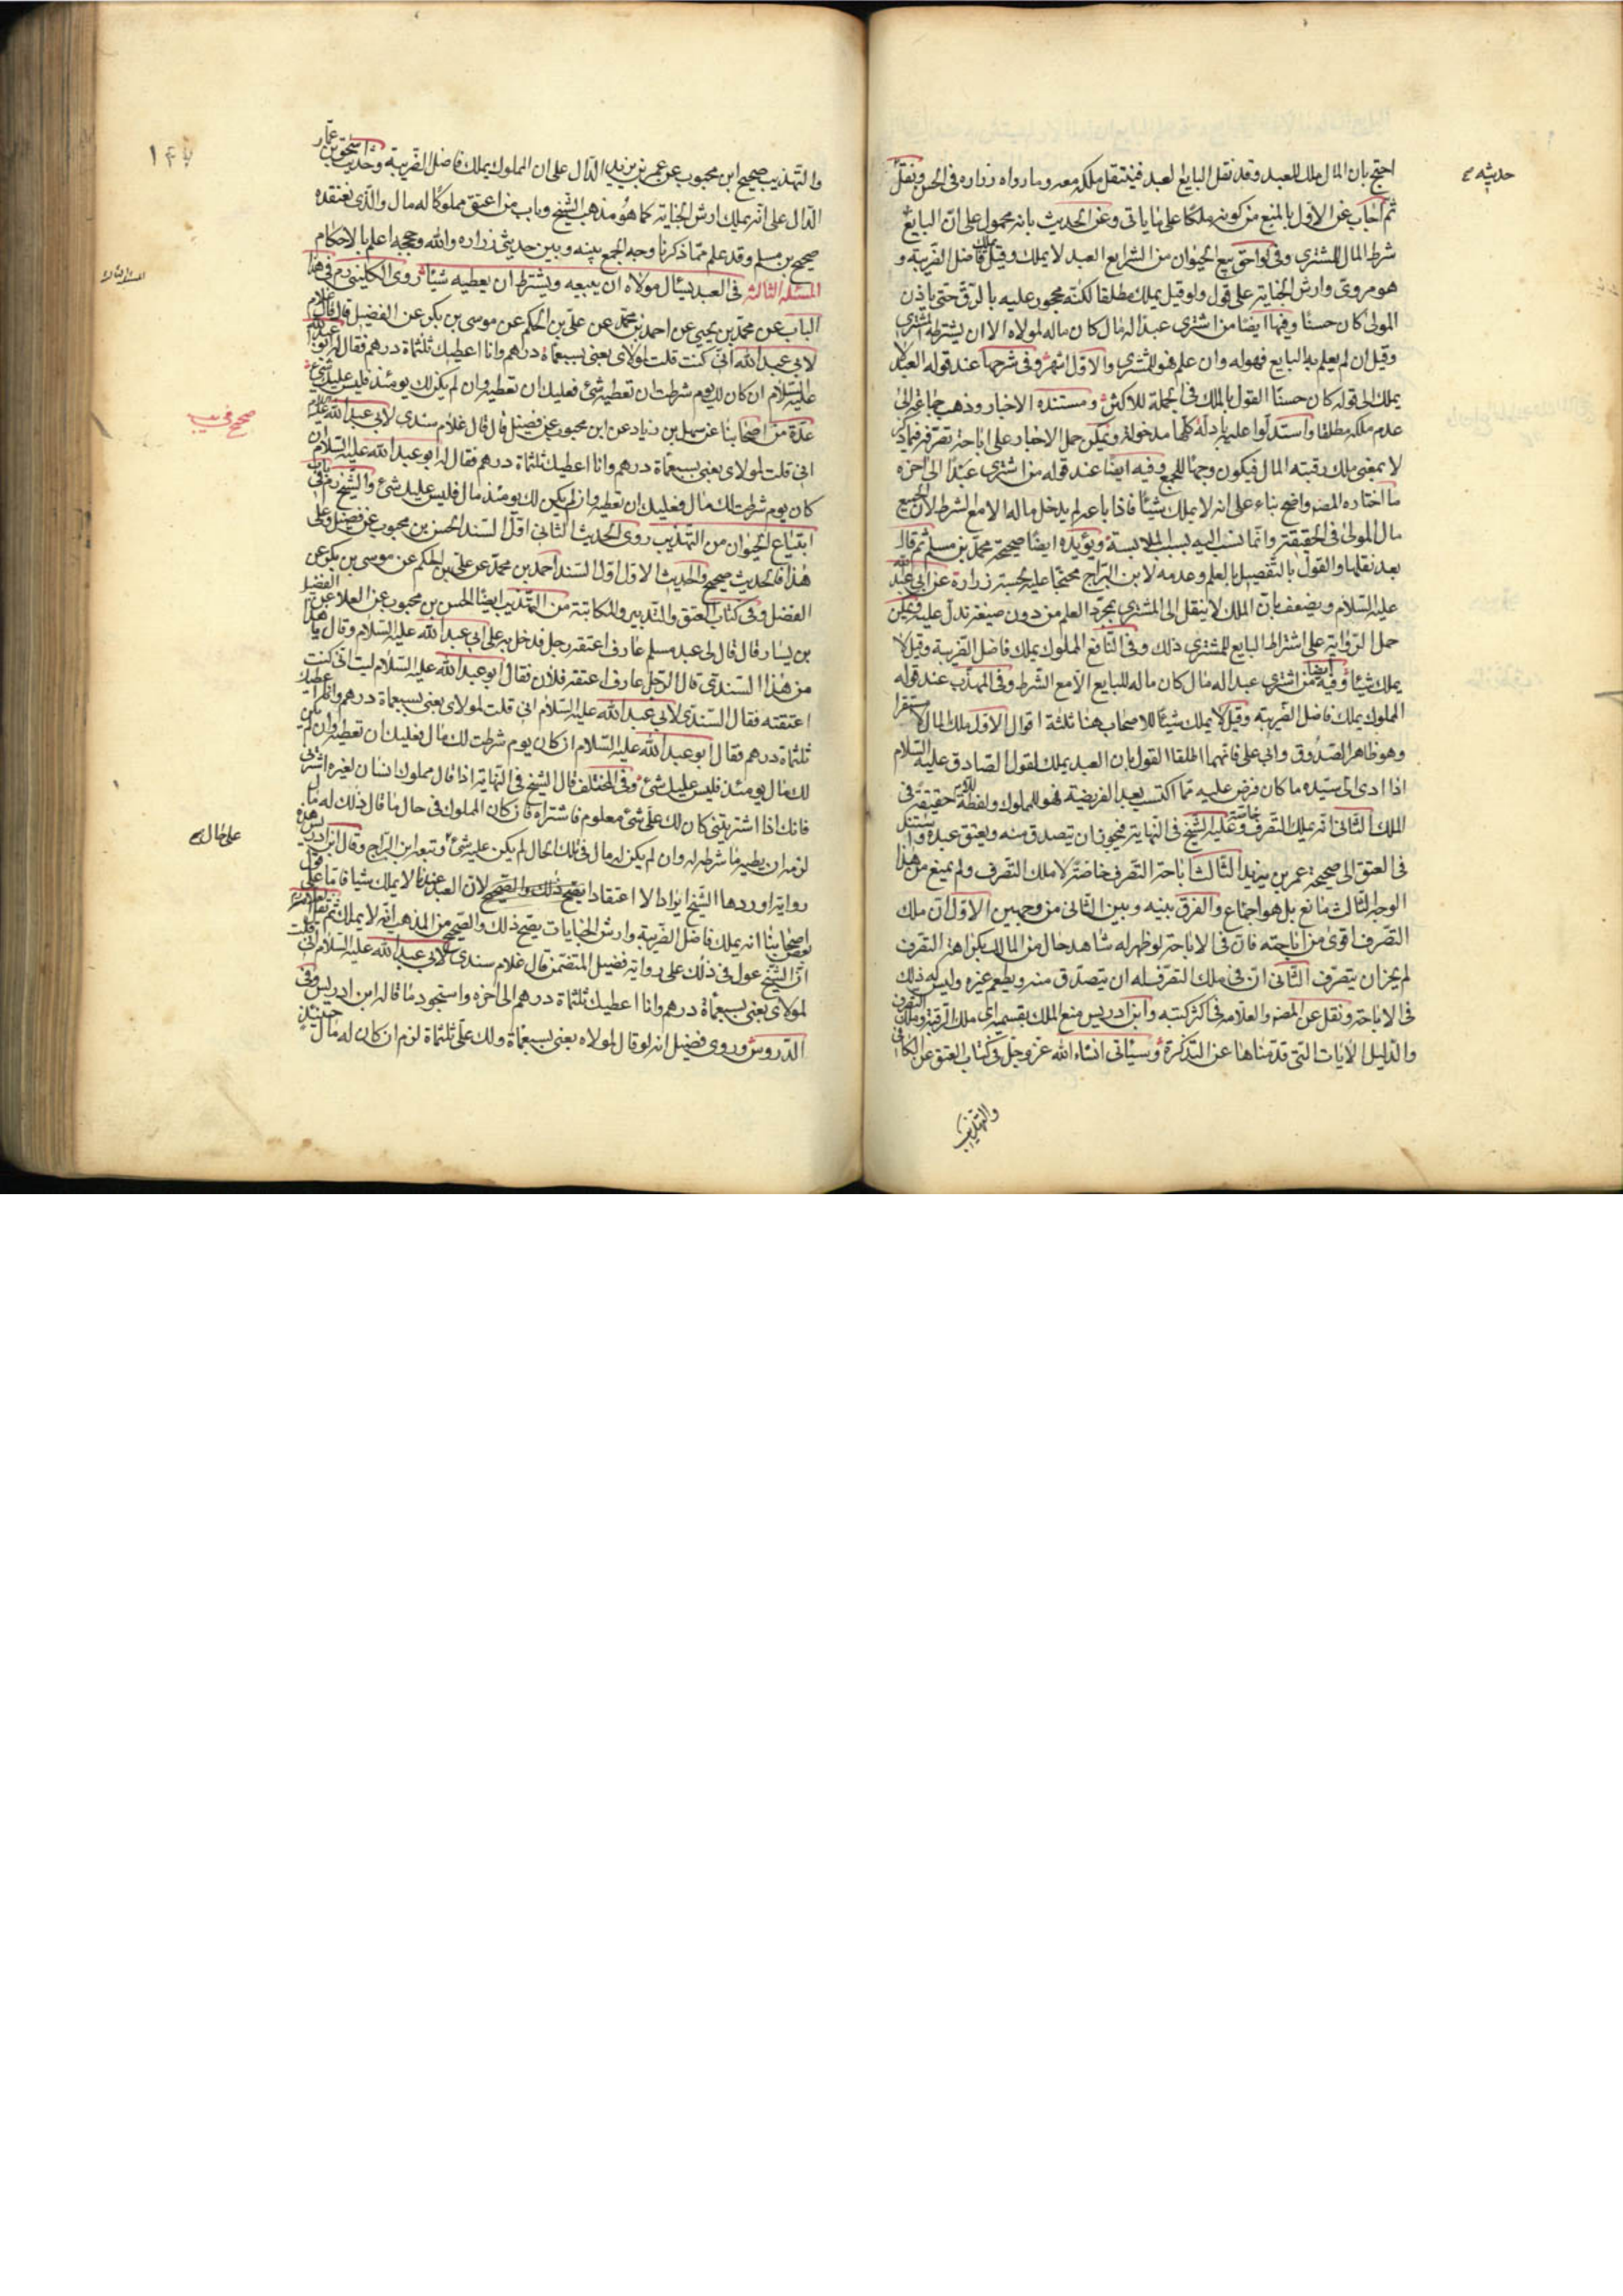 احتج بان المال ملك للعبد وقد نقل البايع لعبد فينتقل ملكه معه وبما رواه زراره في الحسن ونقل
ثم اجاب عن الاول بالمنع من كونه ملكا على ما ياتي وعن الحديث بانه محمول على ان البايع
شرط المال للمشتري وفي لواحق بيع الحيوان من الشرايع العبد لا يملك وقيل يملك فاضل الضريبة و
هو مروي وارش الجناية على قول ولو قيل يملك مطلقا لكنه محجور عليه بالرق حتى ياذن
المولى كان حسنا وفيها ايضا من اشترى عبدا له مال كان ماله لمولاه الا ان يشترطه المشتري
وقيل ان لم يعلم به البايع فهو له وان علم فهو للمشتري والاول اشهر وفي شرحها عند قوله العبد لا
يملك الى قوله كان حسنا القول بالملك في الجملة للاكثر ومستنده الاخبار وذهب جماعة الى
عدم ملكه مطلقا واستدلوا عليه بادلة كلها مدخولة ويمكن حمل الاخبار على اباحة تصرفه فيما ذكر
لا بمعنى ملك رقبته المال فيكون وجها للجمع وفيه ايضا عند قوله من اشترى عبدا الى آخره
ما اختاره المصنف واضح بناء على انه لا يملك شيئا فاذا باعه لم يدخل ماله الا مع الشرط لان الجميع
مال المولى في الحقيقة وانما نسب اليه بسبب الملابسة ويؤيده ايضا صحيحة محمد بن مسلم ثم قال
بعد نقلها والقول بالتفصيل بالعلم وعدمه لابن البراج محتجا عليه بحسنة زرارة عن ابي عبد الله
عليه السلام ويضعف بان الملك لا ينتقل الى المشتري بمجرد العلم من دون صيغة تدل عليه ويمكن
حمل الرواية على اشتراط البايع للمشتري ذلك وفي النافع المملوك يملك فاضل الضريبة وقيل لا
يملك شيئا وفيه ايضا من اشترى عبدا له مال كان ماله للبايع الا مع الشرط وفي المهذب عند قوله
المملوك يملك فاضل الضريبة وقيل لا يملك شيئا للاصحاب هنا ثلثة اقوال الاول ملك المال مستقرا
وهو ظاهر الصدوق وابي علي فانهما اطلقا القول بان العبد يملك لقول الصادق عليه السلام
اذا ادى الى سيده ما كان فرض عليه مما اكتسب بعد الفريضة فهو للمملوك ولفظة اللام حقيقة في
الملك الثاني انه يملك التصرف خاصة وعليه الشيخ في النهاية فيجوز ان يتصدق منه ويعتق عبده واستند
في العتق الى صحيحة عمر بن يزيد الثالث اباحة التصرف خاصة لا ملك التصرف ولم يمنع من هذا
الوجه الثالث مانع بل هو اجماع والفرق بينه وبين الثاني من وجهين الاول ان ملك
التصرف اقوى من اباحته فان في الاباحة لو ظهر له شاهد حال من المالك بكراهة التصرف
لم يجز ان يتصرف الثاني ان في ملك التصرف له ان يتصدق منه ويطعم غيره وليس له ذلك
في الاباحة ونقل عن المصنف والعلامة في اكثر كتبه وابن ادريس منع الملك بقسميه اي ملك الرقبة وملك التصرف
والدليل الايات التي قدمناها عن التذكرة وسياتي انشاء الله عز وجل في كتاب العتق عن الكافي
والتهذيب
والتهذيب صحيح ابن محبوب عن عمر بن يزيد الدال على ان المملوك يملك فاضل الضريبة وحديث اسحق بن عمار
الدال على انه يملك ارش الجناية كما هو مذهب الشيخ وباب من اعتق مملوكا له مال والذي نعتقده
صحيح بن مسلم وقد علم مما ذكرنا وجه الجمع بينه وبين حديثي زراره والله وحججه اعلم بالاحكام
المسئلة الثالثة في العبد يسال مولاه ان يبيعه ويشترط ان يعطيه شيئا روى الكليني ره في هذا
الباب عن محمد بن يحيى عن احمد بن محمد عن علي بن الحكم عن موسى بن بكر عن الفضيل قال قال غلام
لابي عبد الله اني كنت قلت لمولاي بعني بسبعمأة درهم وانا اعطيك ثلثمأة درهم فقال له ابو عبد الله
عليه السلام ان كان لك يوم شرطت ان تعطيه شئ فعليك ان تعطيه وان لم يكن لك يومئذ فليس عليك شئ
عدة من اصحابنا عن سهل بن زياد عن ابن محبوب عن فضيل قال قال غلام سندي لابي عبد الله عليه السلام
اني قلت لمولاي بعني بسبعمأة درهم وانا اعطيك ثلثمأة درهم فقال له ابو عبد الله عليه السلام ان
كان يوم شرطت لك مال فعليك ان تعطيه وان لم يكن لك يومئذ مال فليس عليك شئ والشيخ ره في باب
ابتياع الحيوان من التهذيب روى الحديث الثاني اول السند الحسن بن محبوب عن فضيل وعلى
هذا فالحديث صحيح والحديث الاول اول السند احمد بن محمد عن علي بن الحكم عن موسى بن بكر عن
الفضل وفي كتاب العتق والتدبير والمكاتبة من التهذيب ايضا الحسن بن محبوب عن العلا عن الفضيل
بن يسار قال قال لي عبد مسلم عارف اعتقه رجل فدخل به على ابي عبد الله عليه السلام وقال يا هذا
من هذا السندي قال الرجل عارف اعتقه فلان فقال ابو عبد الله عليه السلام ليت اني كنت
اعتقته فقال السندي لابي عبد الله عليه السلام اني قلت لمولاي بعني بسبعمأة درهم وانا اعطيك
ثلثمأة درهم فقال ابو عبد الله عليه السلام ان كان يوم شرطت لك مال فعليك ان تعطيه وان لم يكن
لك مال يومئذ فليس عليك شئ وفي المختلف قال الشيخ في النهاية اذا قال مملوك انسان لغيره اشترني
فانك اذا اشتريتني كان لك علي شئ معلوم فاشتراه فان كان المملوك في حال ما قال ذلك له مال
لزمه ان يعطيه ما شرطه له وان لم يكن له مال في تلك الحال لم يكن عليه شئ وتبعه ابن البراج وقال ابن ادريس هذه
رواية اوردها الشيخ ايرادا لا اعتقادا لان العبد عندنا لا يملك شيئا فاما على قول
بعض اصحابنا انه يملك فاضل الضريبة وارش الجنايات يصح ذلك والصحيح من المذهب انه لا يملك ثم نقل
ان الشيخ عول في ذلك على رواية فضيل المتضمنة قال غلام سندي لابي عبد الله عليه السلام اني قلت
لمولاي بعني بسبعمأة درهم وانا اعطيك ثلثمأة درهم الى آخره واستجود ما قاله ابن ادريس وفي
الدروس وروى فضيل انه لو قال لمولاه بعني بسبعمأة ولك علي ثلثمأة لزم ان كان له مال حينئذ